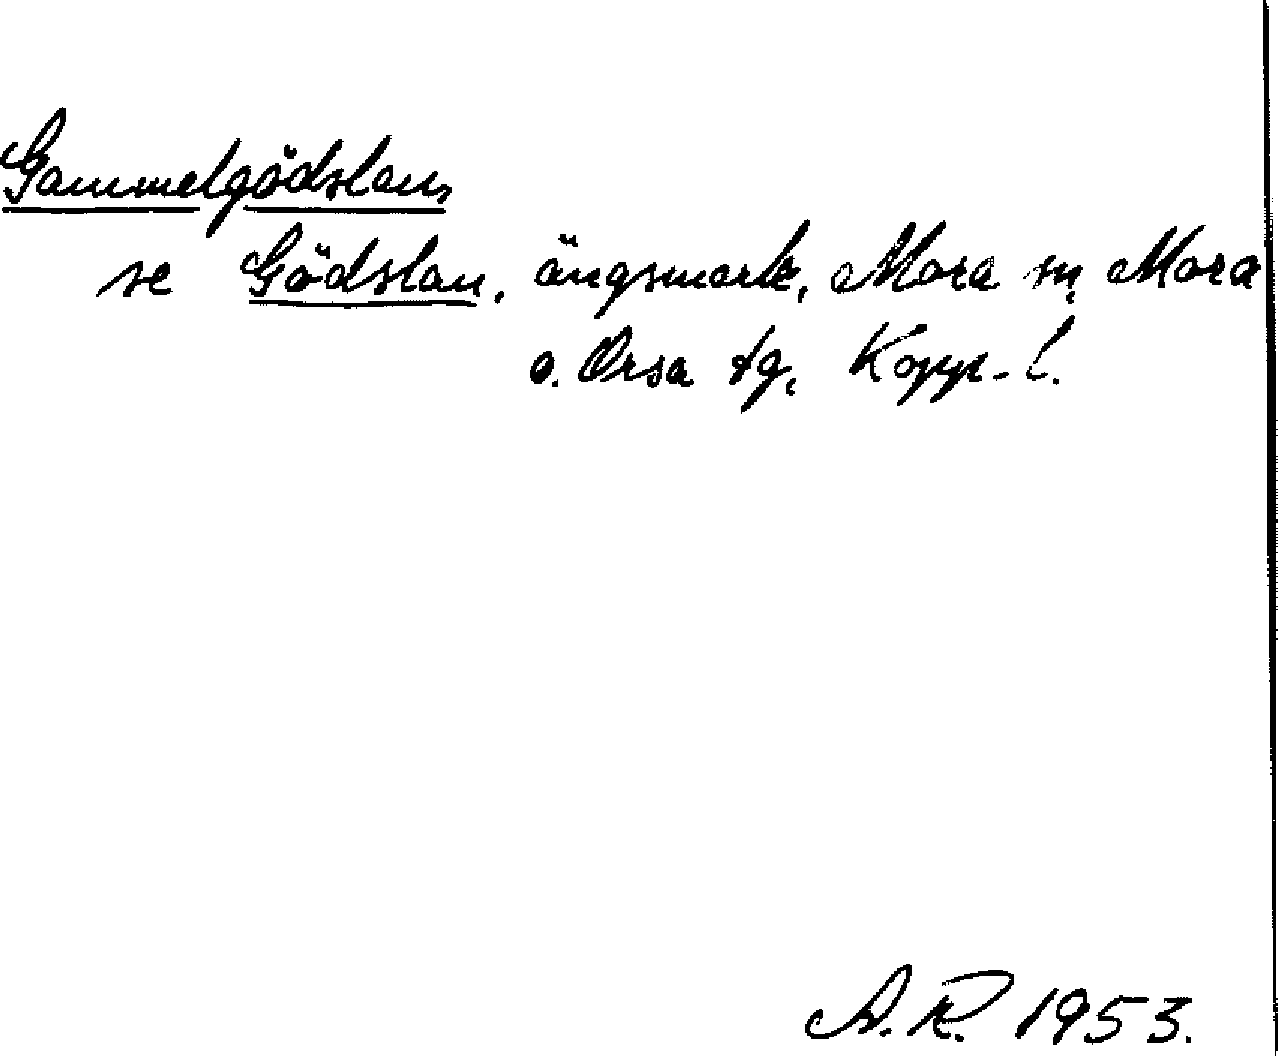 Gammelgödslan,
se Gödslan, ängsmark, Mora sn, Mora
o. Orsa tg, Kopp. l.
A.R. 1953.